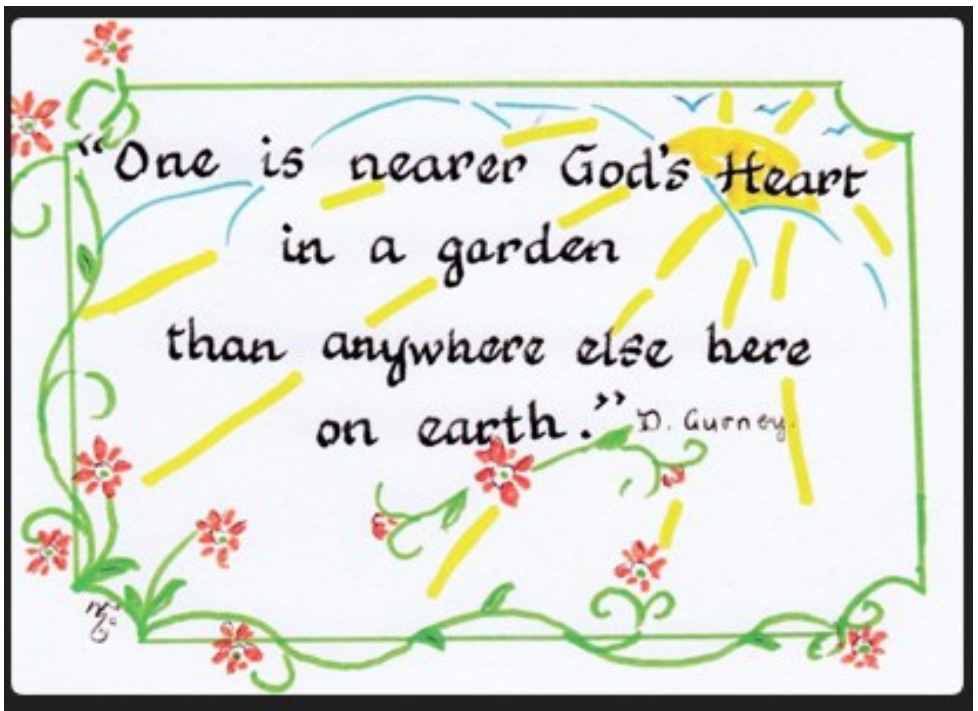 “One is nearer God's Heart
in a garden
than anywhere else here
on earth.” D. Gurney.